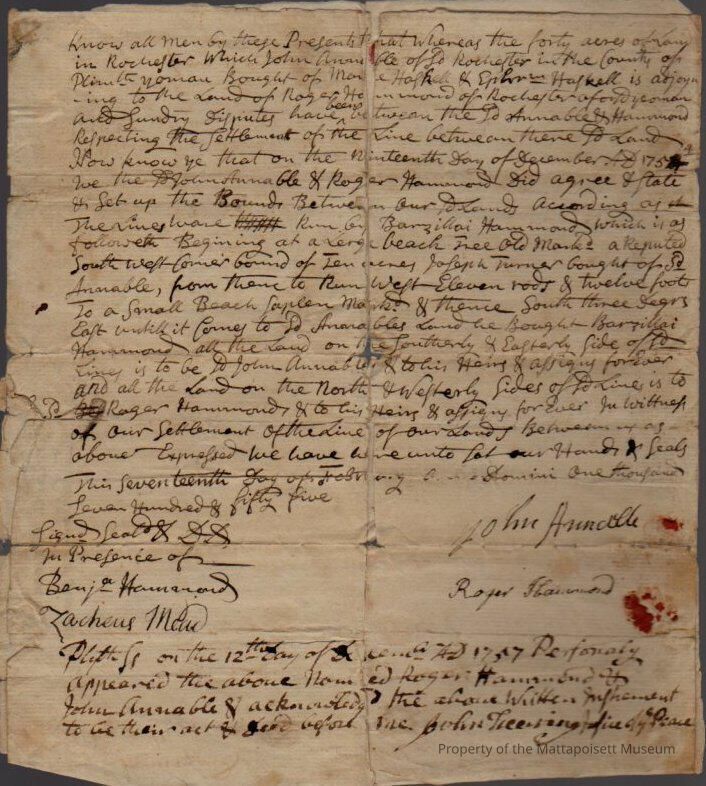 Know all men by these Presents that Whereas the forty acres of Land
in Rochester Which John Annable of sd Rochester in the County of
Plimth yoman Bought of Mark Haskell & Ephrm Haskell is adjoyn
ing to the Land of Roger Hammond of Rochester aforsd yeoman
and Sundry Disputes have been between the sd Annable & Hammond
Respecting the Settlement of the Line between there sd Land
Now know ye that on the Ninteenth Day of December AD 1754
We the sd John Annable & Roger Hammond Did agree & State
& Set up the Bounds Between our sd Lands According as
The Lines ware Run by Barzillai Hammond which is as
followeth Begining at a Large beach Tree old Markd a Reputed
South West Corner bound of Ten acres Joseph Turner bought of sd
Annable, from thence to Run West Eleven rods & twelve foots
To a Small Beach Saplen Markd & thence South three Degrs
East untill it Comes to sd Annables Land he Bought Barzillai
Hammond all the Land on the Southerly & Easterly Side of sd
Lines is to be sd John Annables & to his Heirs & assigns forEver
and all the Land on the North & Westerly Sides of sd Lines is to
sd Roger Hammonds & to his Heirs & assigns for Ever In Wittness
of our Settlement of the Line of our Lands Between us as
above Expressed we have here unto Set our Hands & Seals
This Seventeenth Day of Febry Domini One thousand
Seven Hundred & fifty five
Signd Seald & DD
In Presence of
John Annable
Benja Hammond
Roger Hammond
Zacheus Mead
Plyth Ss on the 12th Day of AD 1757 Personaly
appeared the above Named Roger Hammond &
John Annable & acknowledgd the above Written Instrement
to be their act & Deed before me John Justice of Peace
Property of the Mattapoisett Museum